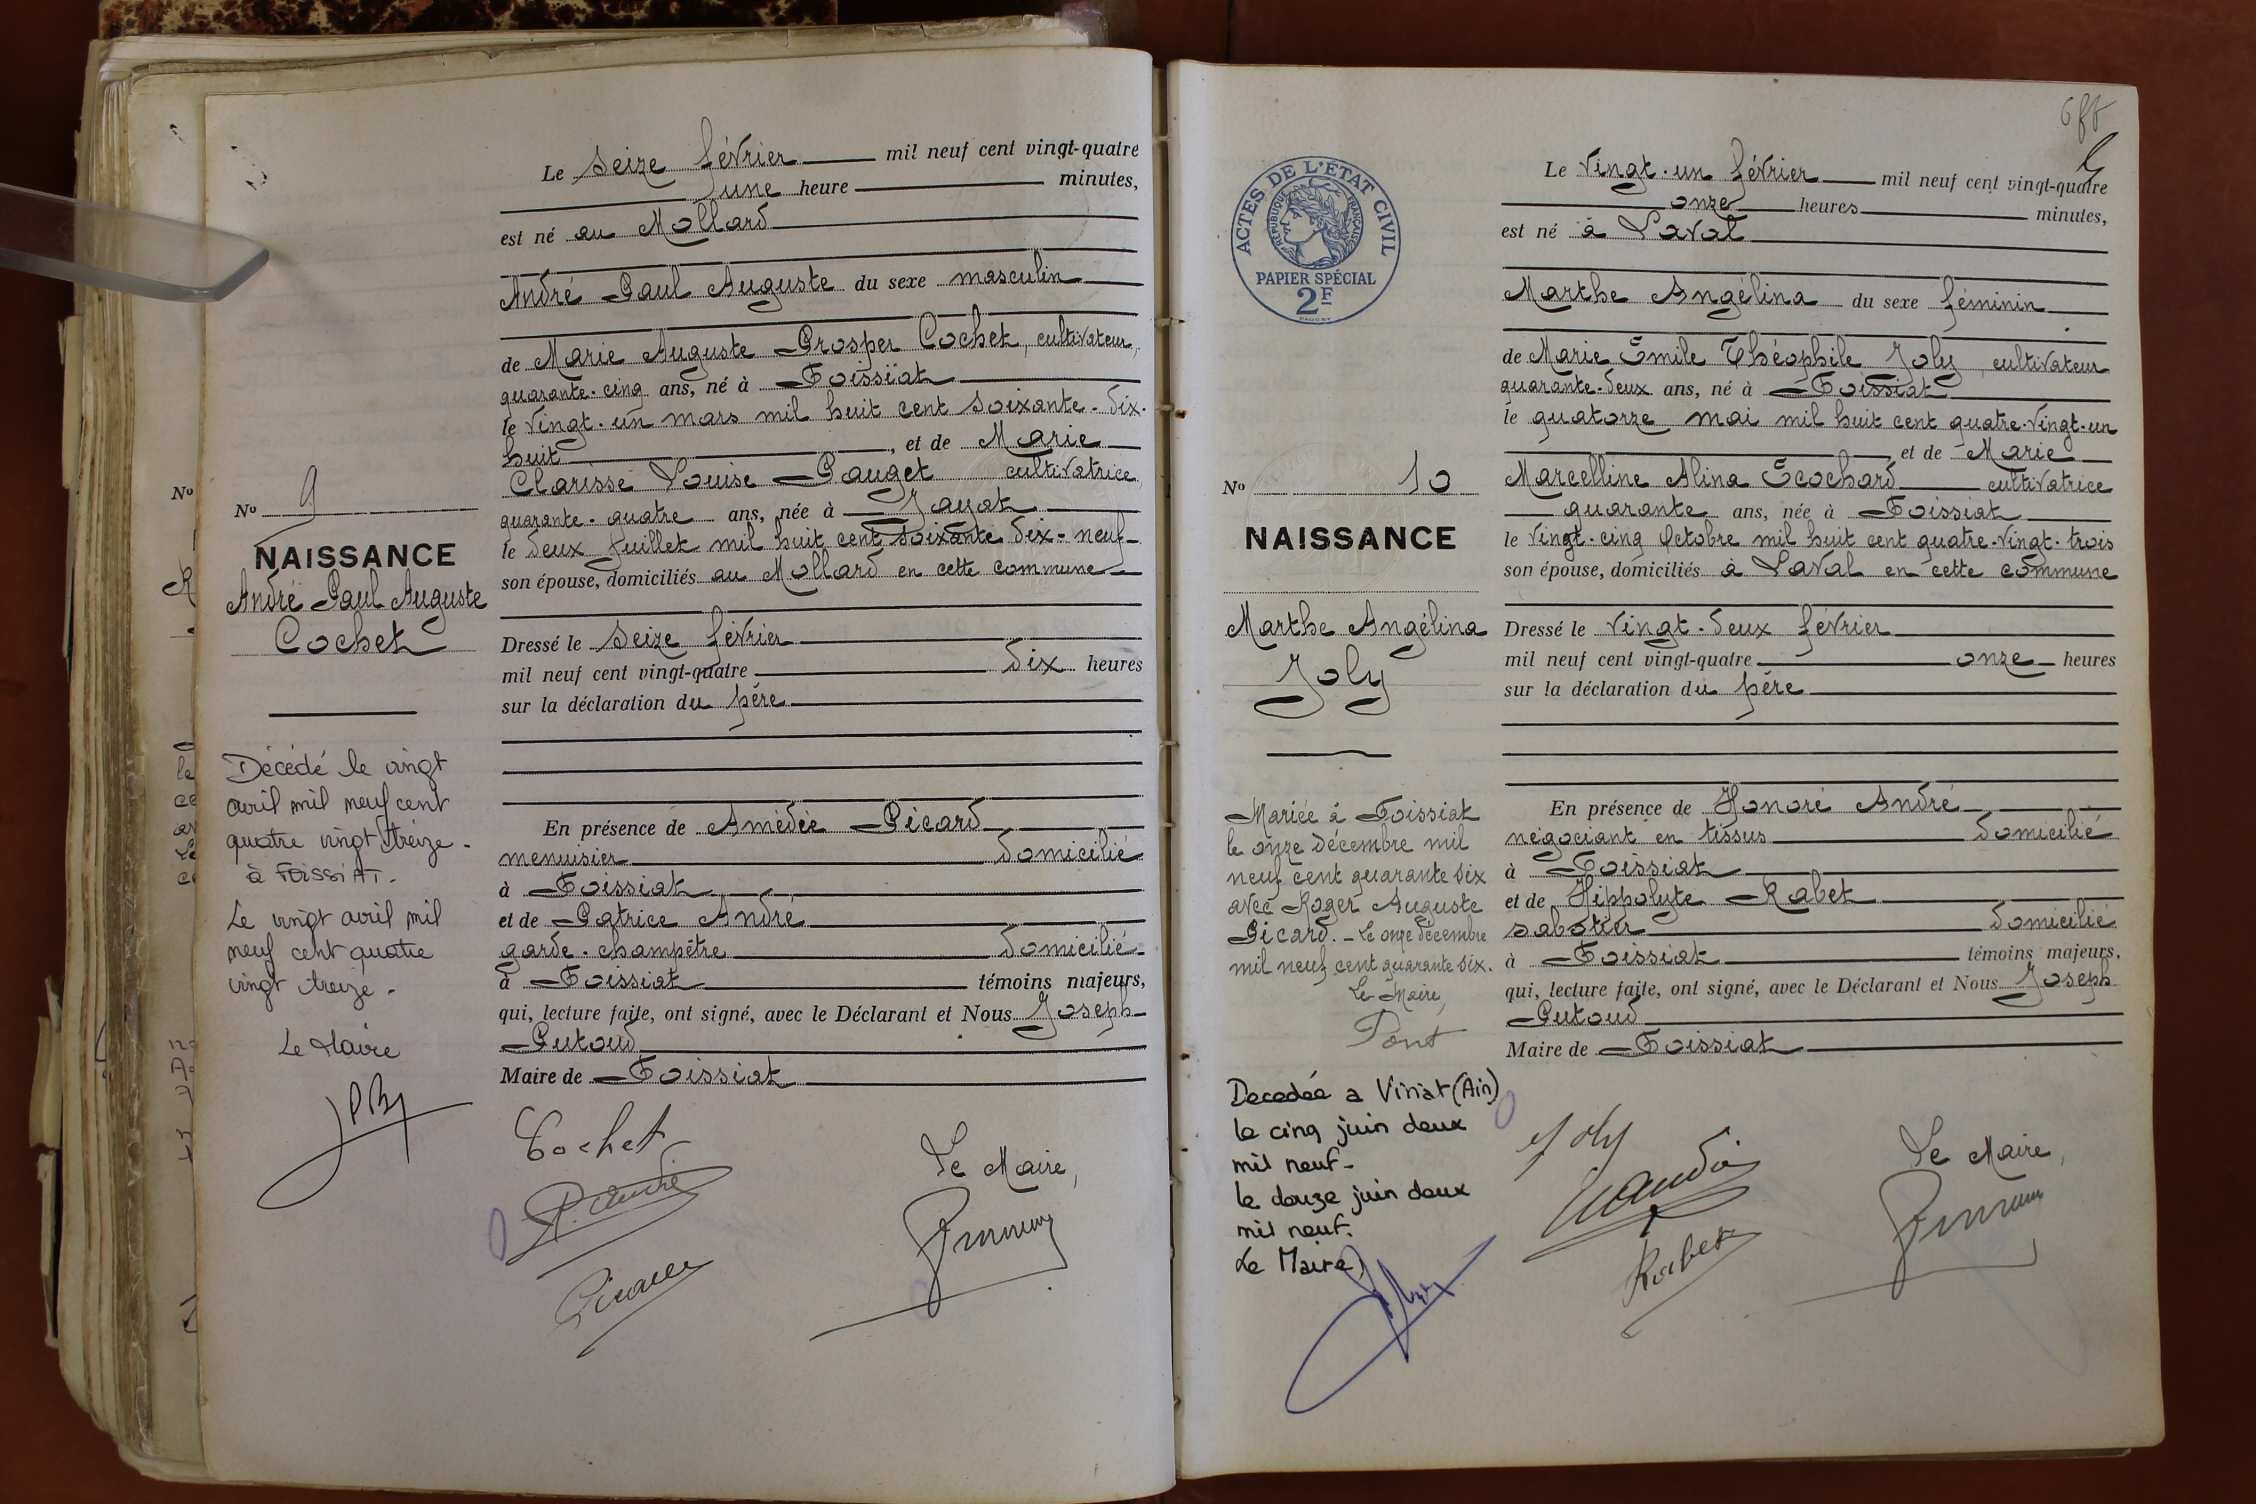 Le seize février mil neuf cent vingt-quatre
une heure minutes,
est né au Mollard
André Paul Auguste du sexe masculin
de Marie Auguste Prosper Cochet, cultivateur,
quarante-cinq ans, né à Foissiat
le vingt-un mars mil huit cent soixante-dix-
huit, et de Marie
Clarisse Louise Pauget cultivatrice
quarante-quatre ans, née à Jayat
le deux Juillet mil huit cent soixante dix-neuf
son épouse, domiciliés au Mollard en cette commune
Dressé le seize février
mil neuf cent vingt-quatre dix heures
sur la déclaration du père
En présence de Amédée Picard
menuisier domicilié
à Foissiat
et de Patrice André
garde-champêtre domicilié
à Foissiat témoins majeurs,
qui, lecture faite, ont signé, avec le Déclarant et Nous Joseph
Putoud
Maire de Foissiat
Cochet
P. André
Picard
Le Maire,
No
No 9
NAISSANCE
André Paul Auguste
Cochet
Décédé le vingt
avril mil neuf cent
quatre vingt treize.
à FOISSIAT.
Le vingt avril mil
neuf cent quatre
vingt treize.
Le Maire
Le vingt-un février mil neuf cent vingt-quatre
onze heures minutes,
est né à Laval
Marthe Angélina du sexe féminin
de Marie Emile Théophile Joly, cultivateur
quarante-deux ans, né à Foissiat
le quatorze mai mil huit cent quatre-vingt-un
et de Marie
Marcelline Alina Ecochard cultivatrice
quarante ans, née à Foissiat
le vingt-cinq Octobre mil huit cent quatre-vingt-trois
son épouse, domiciliés à Laval en cette commune
Dressé le vingt-deux février
mil neuf cent vingt-quatre onze heures
sur la déclaration du père
En présence de Honoré André
négociant en tissus domicilié
à Foissiat
et de Hippolyte Rabet
sabotier domicilié
à Foissiat témoins majeurs,
qui, lecture faite, ont signé, avec le Déclarant et Nous Joseph
Putoud
Maire de Foissiat
Joly
Rabet
Le Maire,
ACTES DE L'ÉTAT CIVIL
RÉPUBLIQUE FRANÇAISE
PAPIER SPÉCIAL
2F
No 10
NAISSANCE
Marthe Angélina
Joly
Mariée à Foissiat
le onze Décembre mil
neuf cent quarante six
avec Roger Auguste
Picard. - Le onze décembre
mil neuf cent quarante six.
Le Maire,
Pont
Decedée a Viriat (Ain)
le cinq juin deux
mil neuf-
le douze juin deux
mil neuf.
Le Maire,